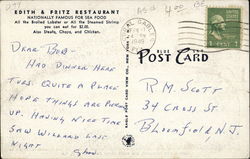 EDITH & FRITZ RESTAURANT
NATIONALLY FAMOUS FOR SEA FOOD
All the Broiled Lobster or All the Steamed Shrimp
you can eat for $2.00.
Also Steaks, Chops, and Chicken.
DEAR BOB-
HAD DINNER HERE
TUES. QUITE A PLACE
HOPE THINGS ARE PERKING
UP. HAVING NICE TIME
SAW WILLARD LAST
NIGHT
BLUE
POST CARD
R.M. SCOTT
34 CROSS ST
BLOOMFIELD, N.J.